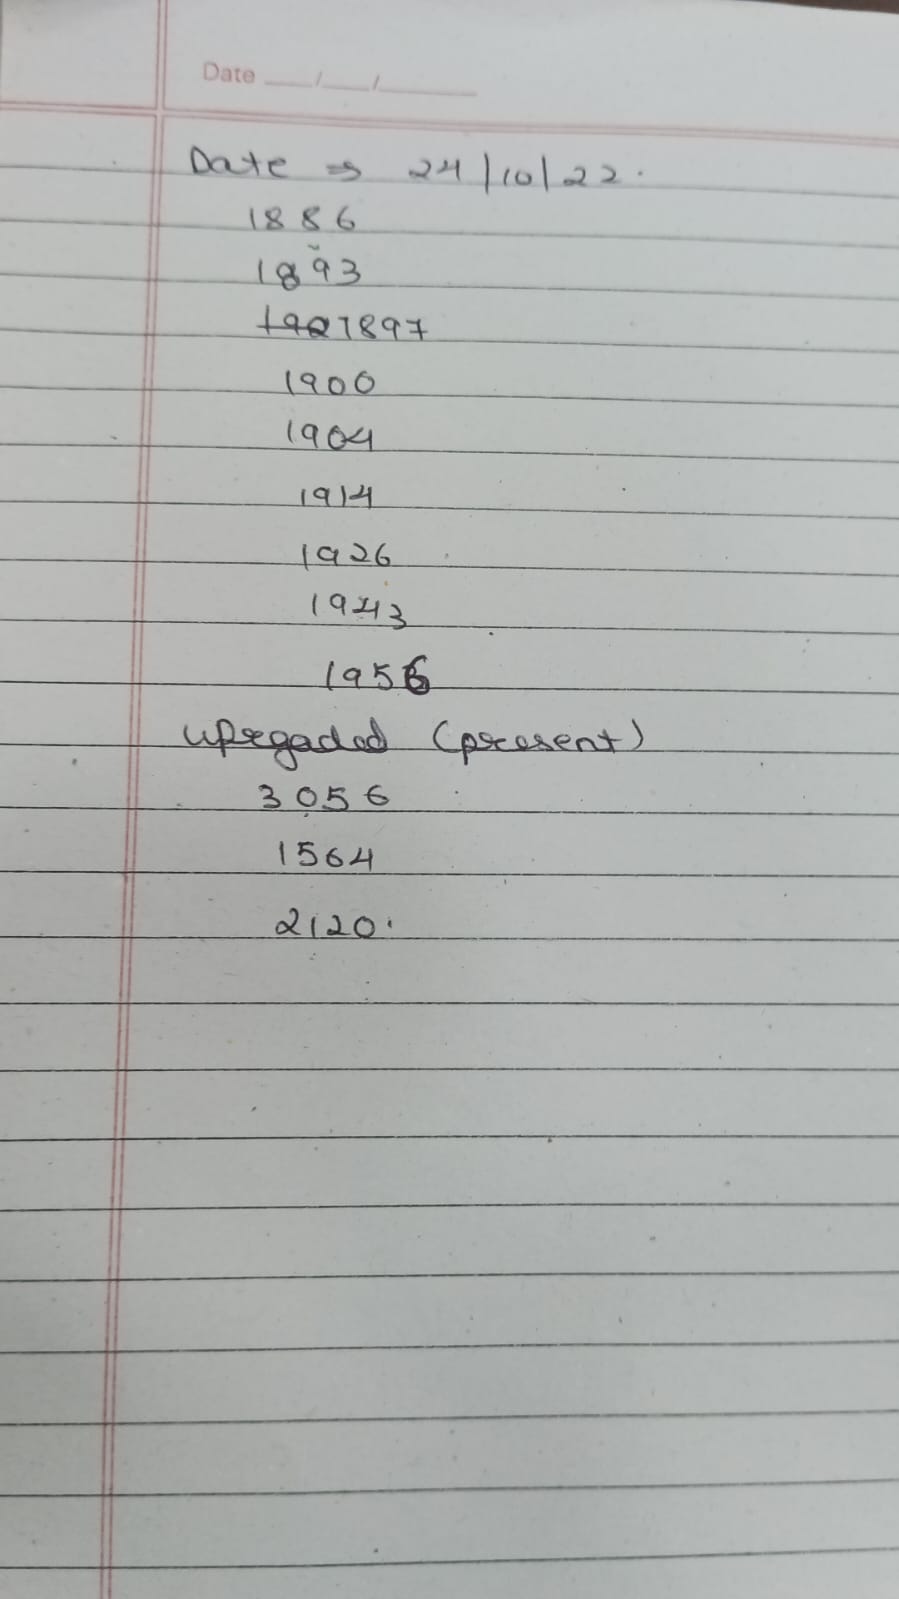 Date __/__/____
Date ⇒ 24/10/22.
1886
1893
1897
1900
1904
1914
1926
1943
1956
upregaded (present)
3056
1564
2120.